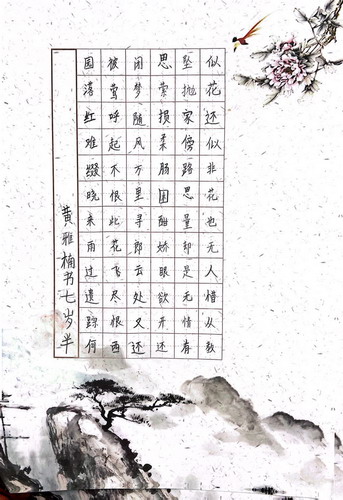 似花还似非花也无人惜从教
坠抛家傍路思量却是无情有
思萦损柔肠困酣娇眼欲开还
闭梦随风万里寻郎云处又还
被莺呼起不恨此花飞尽恨西
园落红难缀晓来雨过遗踪何
黄雅楠书七岁半